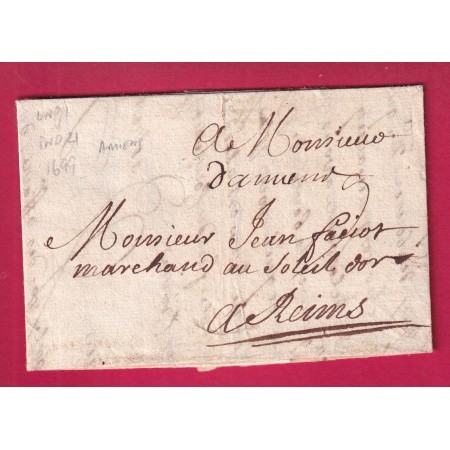 LN91
IND 21
1699
AMIENS
A Monsieur
damiens
Monsieur Jean faciot
marchand au Soleil dor
a Reims